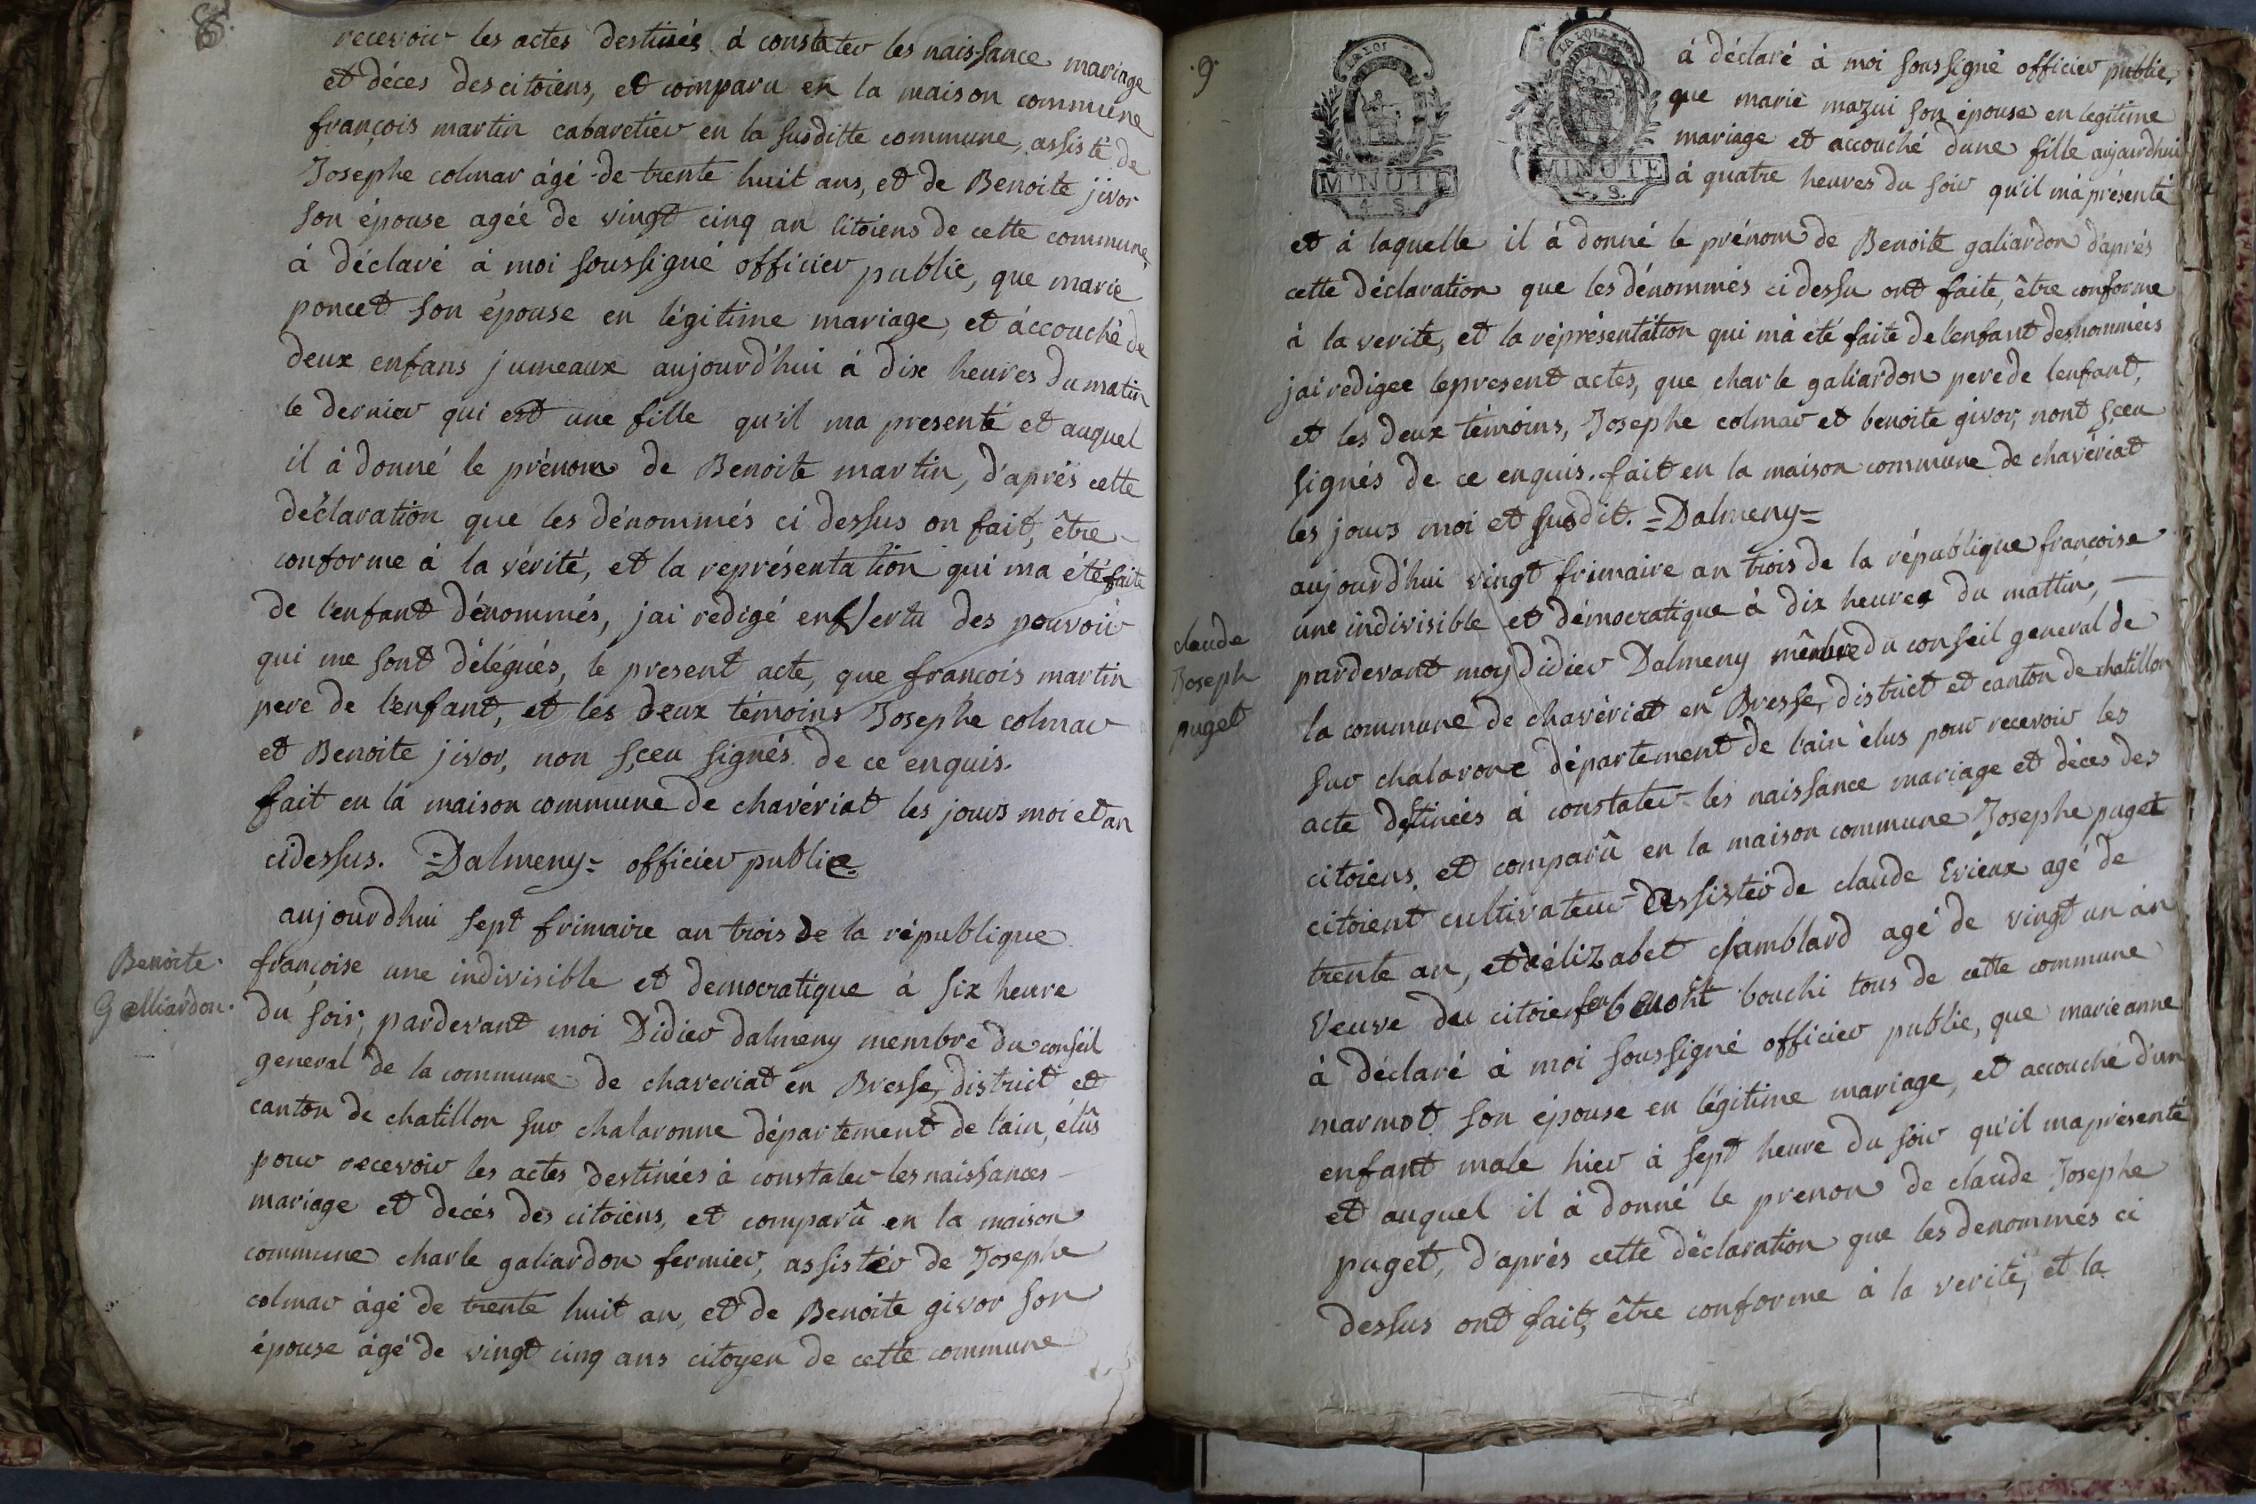 8.
recevoir les actes destinés à constater les naissance mariage
et déces des citoiens, et comparu en la maison commune
françois martin cabaretier en la susditte commune, assisté de
Josephe colmar âgé de trente huit ans, et de Benoite jivor
son épouse agéé de vingt cinq an citoiens de cette commune
à déclaré à moi soussigné officier public, que marie
poncet son épouse en légitime mariage, et áccouché de
deux enfans jumeaux aujourd'hui à dix heures du matin
le dernier qui est une fille qu'il ma presenté et auquel
il à donné le prénom de Benoite martin, d'aprés cette
déclaration que les dénommés ci dessus on fait, être
conforme à la vérité, et la représentation qui ma été faite
de l'enfant dénommés, jai redigé en vertu des pouvoir
qui me sont délégués, le present acte, que francois martin
pere de l'enfant, et les deux témoins Josephe colmar
et Benoite jivor, non sceu signés de ce enquis.
fait en la maison commune de chavériat les jours moi et an
cidessus. =Dalmeny= officier public
Benoite
Galliardon.
aujourdhui sept frimaire an trois de la république
françoise une indivisible et democratique à six heure
du soir, pardevant moi Didier dalmeny membre du conseil
general de la commune de chaveriat en Bresse, district et
canton de chatillon sur chalaronne département de l'ain, élus
pour recevoir les actes destinéés à constater les naissances
mariage et decés des citoiens, et comparû en la maison
commune charle galiardon fermier, assistér de Josephe
colmar âgé de trente huit an, et de Benoite givor son
épouse âgé de vingt cinq ans citoyen de cette commune
9.
LA LOI
MINUTE
4. S.
MINUTE
S.
à déclaré à moi soussigné officier public,
que marie mazui son épouse en legitime
mariage et accouché dune fille aujourdhui
à quatre heures du soir qu'il mà présenté
et à laquelle il à donné le prénom de Benoite galiardon d'aprés
cette déclaration que les dénommés ci dessu ont faite, être conforme
à la verite, et la réprésentation qui mà eté faite de l'enfant desnommées
jai redigee le present actes, que charle galiardon pere de lenfant,
et les deux témoins, Josephe colmar et benoite givor, nont sceu
signés de ce enquis. fait en la maison commune de chavériat
les jours moi et susdit. =Dalmeny=
claude
Joseph
puget
aujourd'hui vingt frimaire an trois de la république francoise
une indivisible et démocratique à dix heures du mattin,
pardevant moy Didier Dalmeny mêmbre du conseil general de
la commune de chavèriat en Bresse, district et canton de chatillon
sur chalarone département de l'ain èlus pour recevoir les
acte destinéés à constater les naissance mariage et déces des
citoiens, et comparû en la maison commune Josephe puget
citoient cultivateur assister de claude Evieux agé de
trente an, et délizabet chamblard agé de vingt un an
Veuve du citoien feu benoit bouchi tous de cette commune
à déclaré à moi soussigné officier public, que marie anne
marmot son épouse en légitime mariage, et accouché d'un
enfant male hier à sept heure du soir qu'il ma présenté
et auquel il à donné le prenon de claude Josephe
puget, d'aprés cette déclaration que les denommés ci
dessus ont fait, être conforme à la verité, et la